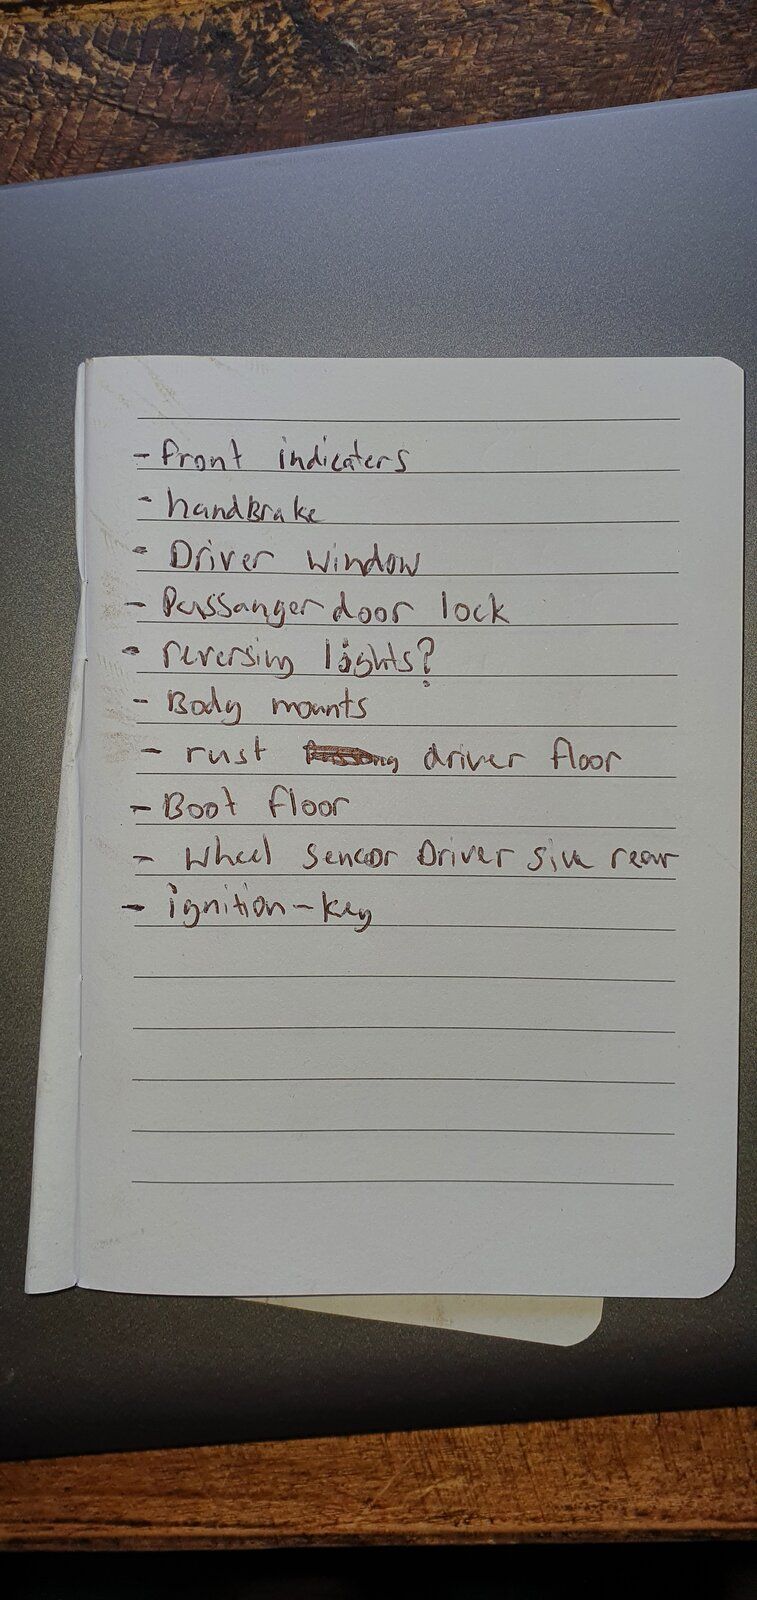 - front indicaters
- handBrake
- Driver window
- Passanger door lock
- reversing lights?
- Body mounts
- rust driver floor
- Boot floor
- wheel sencor Driver side rear
- ignition-key